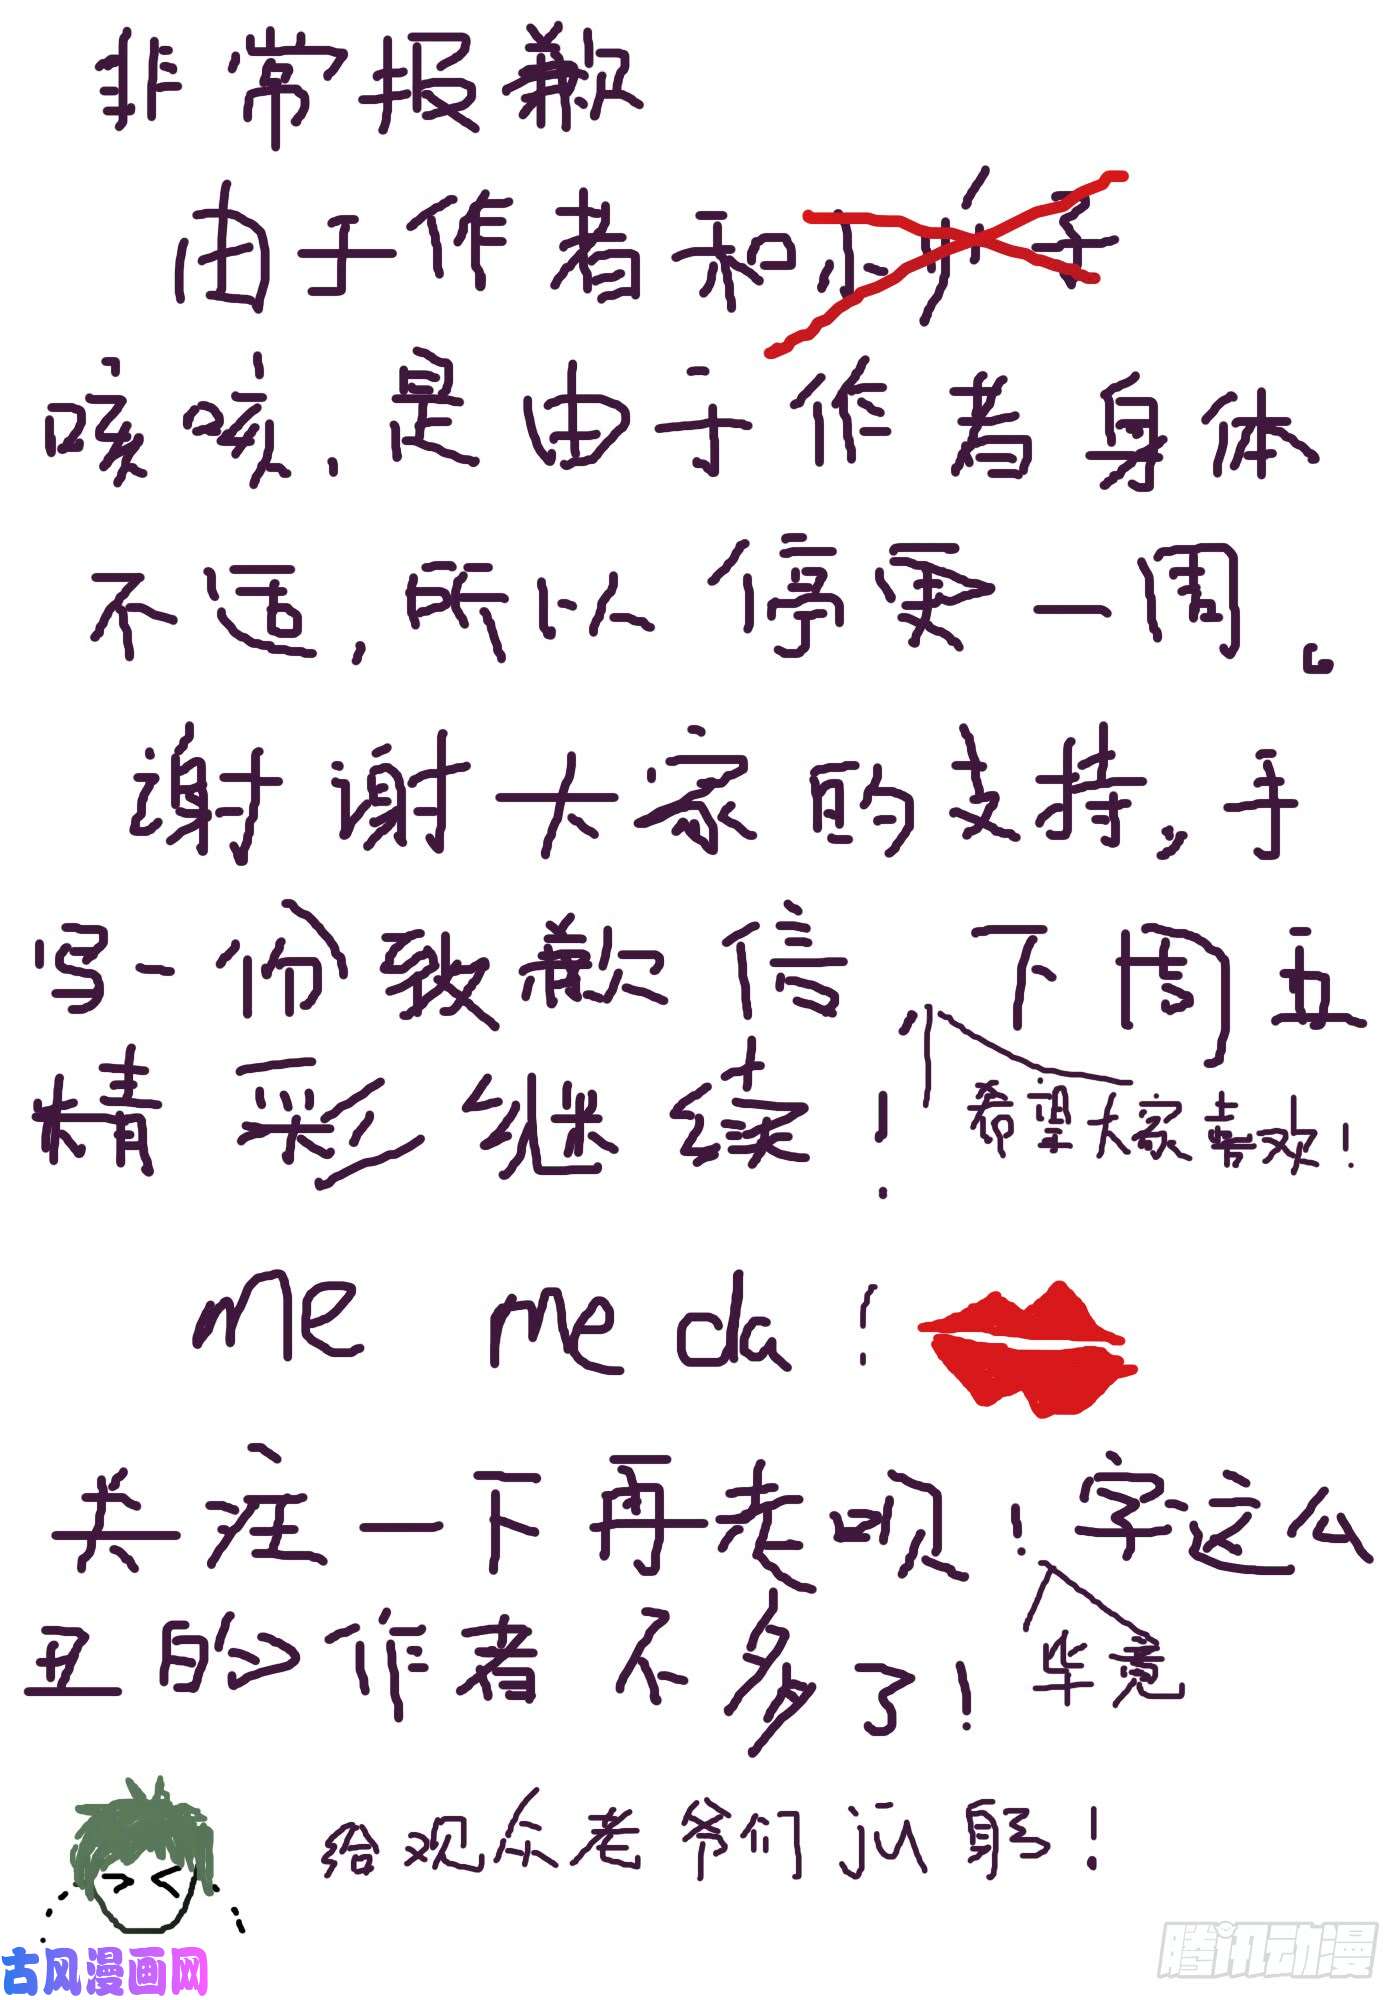 非常报歉
由于作者和小小子
咳咳,是由于作者身体
不适,所以停更一周。
谢谢大家的支持,手
写一份致歉信,下周五
精彩继续!
希望大家喜欢!
me me da!
关注一下再走呗!字这么
丑的作者不多了!
毕竟
给观众老爷们 鞠躬!
古风漫画网
腾讯动漫